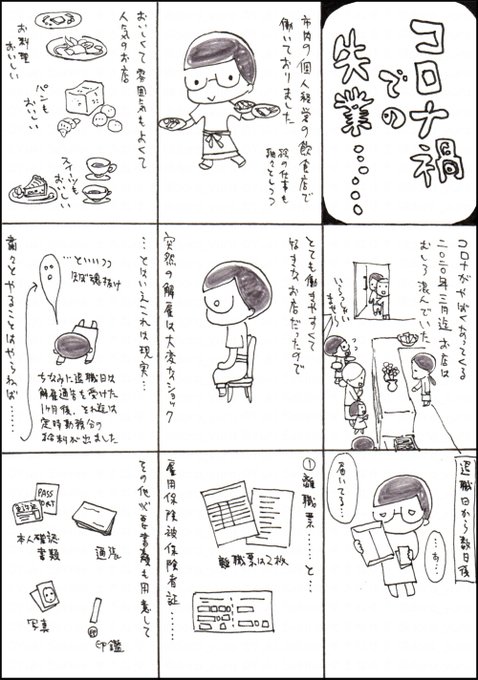 コロナ禍
での
失業……
市内の個人経営の飲食店で
働いておりました
絵の仕事も
細々としつつ
おいしくて雰囲気もよくて
人気のお店
お料理
おいしい
パンも
おいしい
スイーツも
おいしい
コロナがやばくなってくる
二〇二〇年三月迄お店は
むしろ混んでいた
いらっしゃい
ませー
とても働きやすくて
好きなお店だったので
突然の解雇は大変なショック
…とはいえこれは現実…
…といいつつ
ほぼ魂抜け
ちなみに退職日は
解雇通告を受けた
1ヶ月後。それ迄は
定時勤務分の
お給料が出ました
粛々とやることはやらねば……
退職日から数日後
…お…
届いてる…
①離職票……と…
離職票は2枚
雇用保険被保険者証……
その他必要書類も用意して
PASS
PORT
本人確認
書類
通帳
写真
印鑑